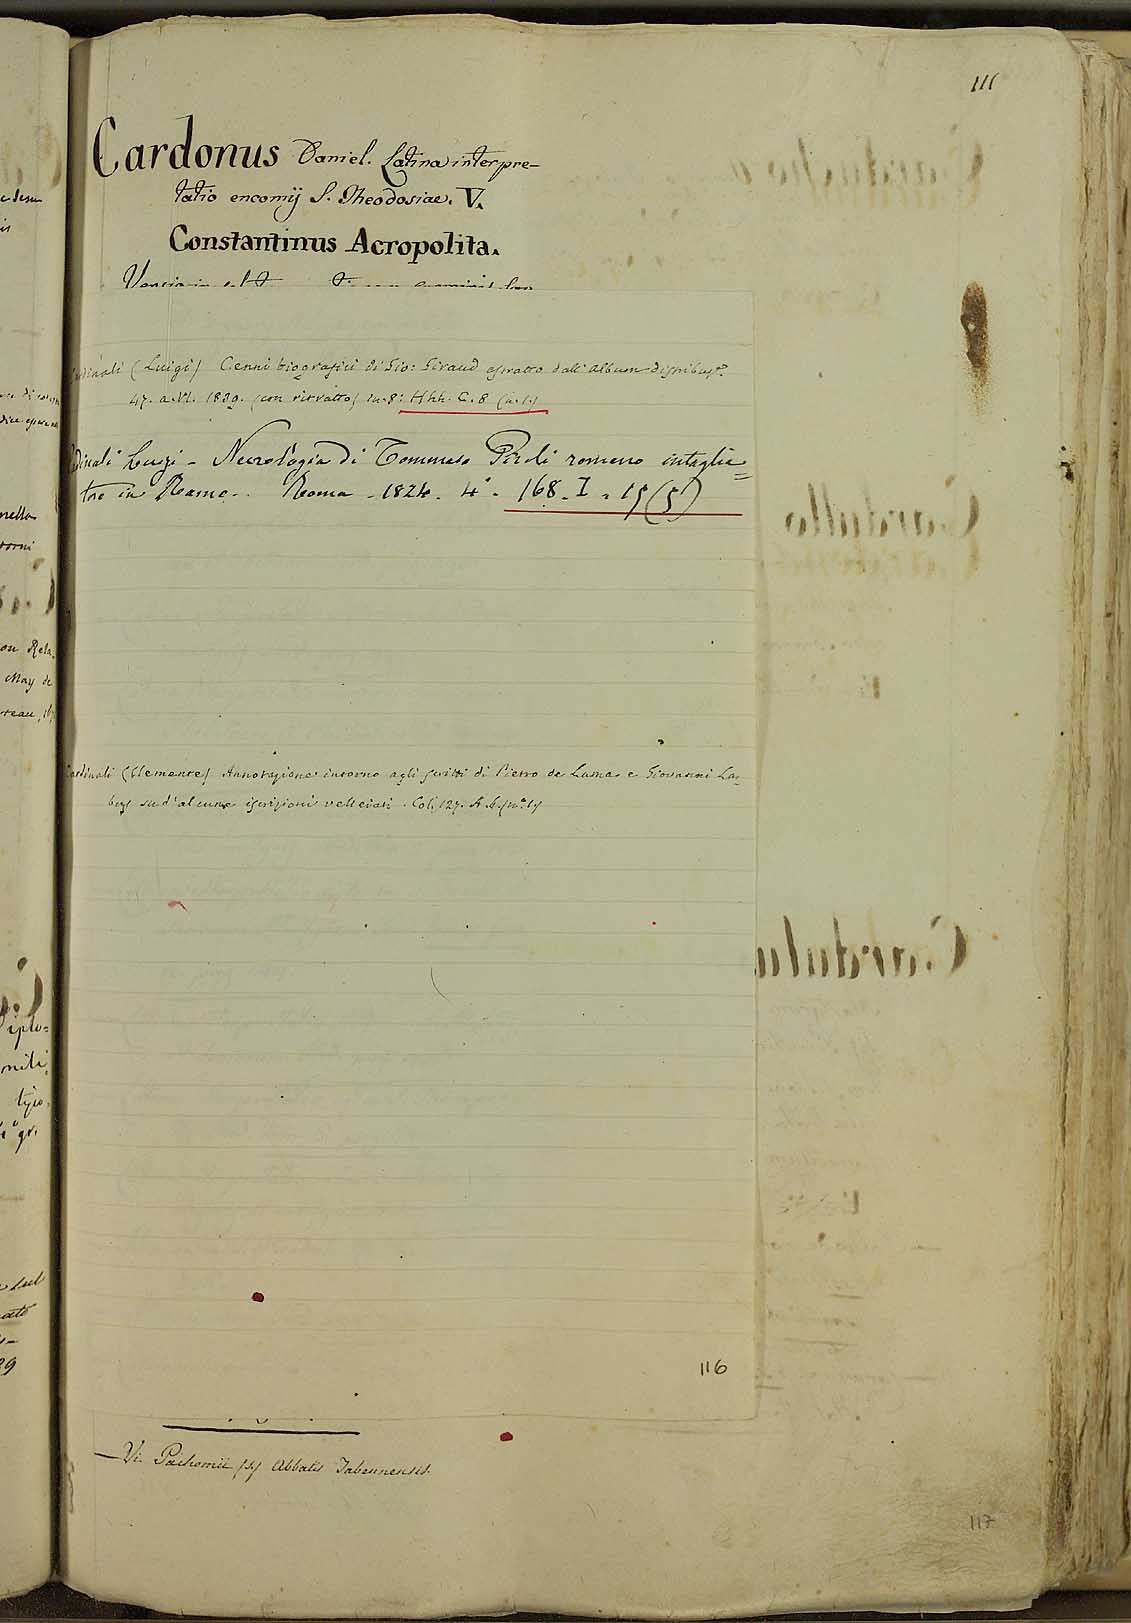 111
Cardonus Daniel. Latina interpre-
tatio encomij S. Theodosiae. V.
Constantinus Acropolita.
Cardinali (Luigi) Cenni biografici di Gio: Giraud estratto dall'Album distribuz.e
47. a. VI. 1839. (con ritratto) in-8: Hhh. C. 8 (n.1)
Cardinali Luigi - Necrologia di Tommaso Piroli romano intaglia=
tore in Rame. Roma - 1824. 4° - 168. I. 15 (5)
Cardinali (Clemente) Annotazione intorno agli scritti di Pietro de Lama e Giovanni La-
bus su d'alcune iscrizioni velleiati. Col. 127. A. 6. (n.° 1)
116
— Vi. Pachomii (S) Abbatis Tabennensis
117